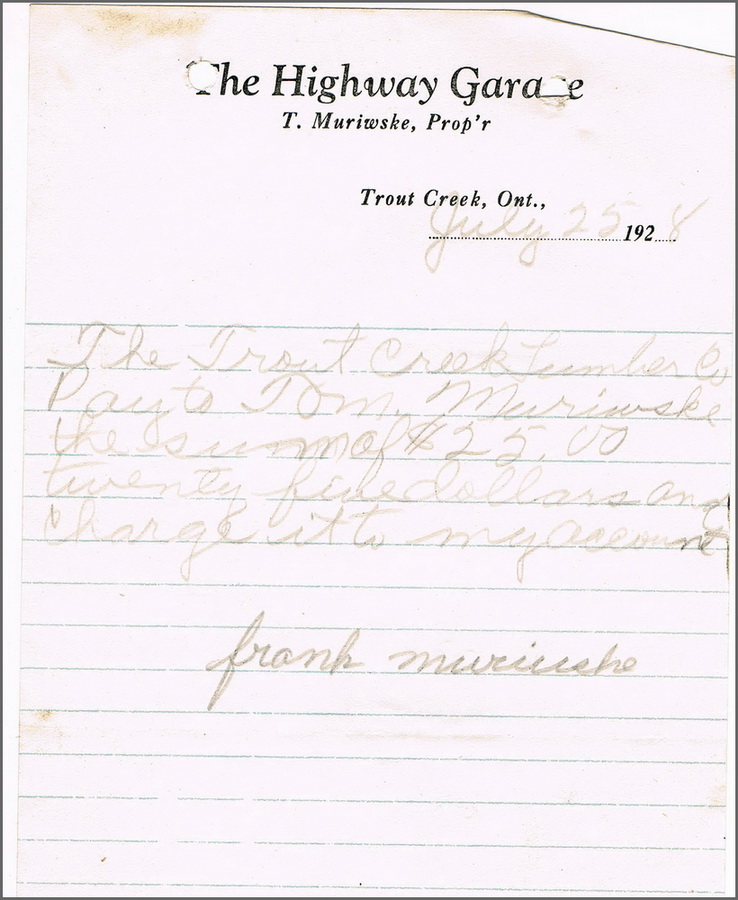 The Highway Garage
T. Muriwske, Prop'r
Trout Creek, Ont.,
July 25 1928
The Trout Creek Lumber Co
Pay to Tom. Muriwske
the sum of $25.00
twenty five dollars and
charge it to my account
frank muriwske